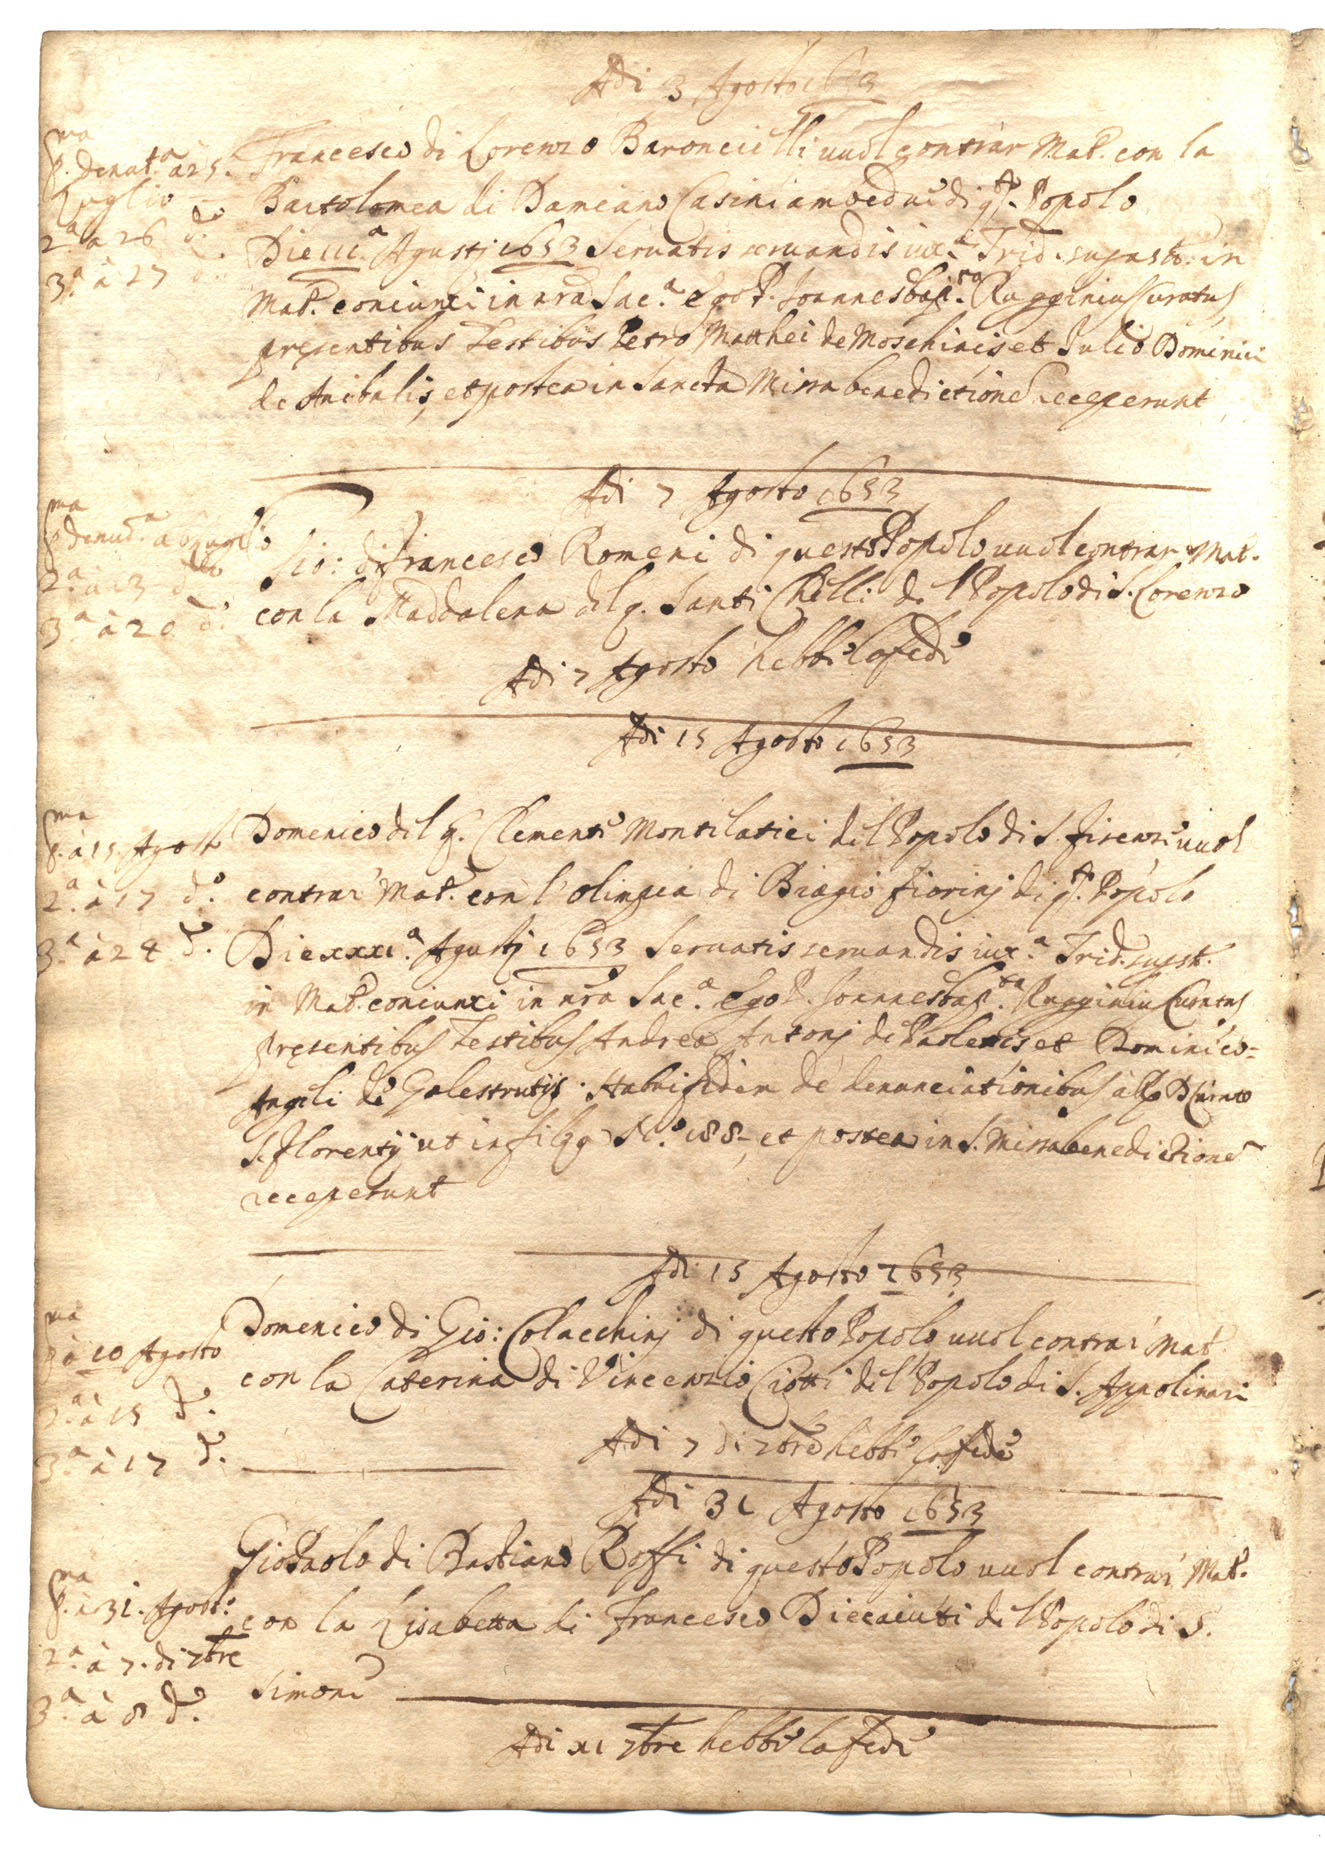 Adi 3 Agosto 1653
p.ma denut.a à 25.
Luglio
2.a a 26 d.o
3.a à 27 d.o
Francesco di Lorenzo Baroncielli vuol contrar Mat.o con la
Bartolomea di Damiano Casini ambedue di q.to Popolo
Die Agusti 1653 Servatis servandis iux.a Trid. in
Mat.o coniunxi in nra Sac.a Ego P. Joannesbap.ta Rugginius Curatus
presentibus Testibus Petro Matthei de Moschinis et Julio Dominici
de Anibalis, et postea in Sancta Missa benedictione receperunt
Adi 7 Agosto 1653
p.ma denut.a a 6 Luglio
2.a a 13 d.o
3.a à 20 d.o
Gio: di Francesco Romeni di questo Popolo vuol contrar Mat.o
con la Maddalena del q. Santi Chelli del Popolo di S. Lorenzo
Adi 7 Agosto hebbe la fede
Adi 15 Agosto 1653
p.ma à 15 Agosto
2.a à 17 d.o
3.a à 24 d.o
Domenico del q. Clemente Montilatici del Popolo di S. Firenze vuol
contrar Mat.o con l'olimpia di Biagio Fiorinj di q.to Popolo
Die xxxi.a Agustj 1653 Servatis servandis iux.a Trid.
in Mat.o coniunxi in nra Sac.a Ego P. Joannesbap.ta Rugginius Curatus
presentibus Testibus Andrea Antonj de Paolettis et Dominico
Angeli de Galestrutijs. Habui fidem de denunciationibus
S. Florentij ut in filza N.o 188, et postea in S. Missa benedictione
receperunt
Adi 15 Agosto 1653
p.ma à 10 Agosto
2.a à 15 d.o
3.a à 17 d.o
Domenico di Gio: Colacchinj di questo Popolo vuol contrar Mat.o
con la Caterina di Vincenzio Ciotti del Popolo di S. Appolinari
Adi 7 di 7bre hebbe la fede
Adi 31 Agosto 1653
p.ma à 31. Agost.o
2.a à 7. di 7bre
3.a à 8 d.o
GioPaolo di Bastiano Roffi di questo Popolo vuol contrar Mat.o
con la Lisabetta di Francesco Dieciaiuti del Popolo di S.
Simone
Adi xi 7bre hebbe la fede